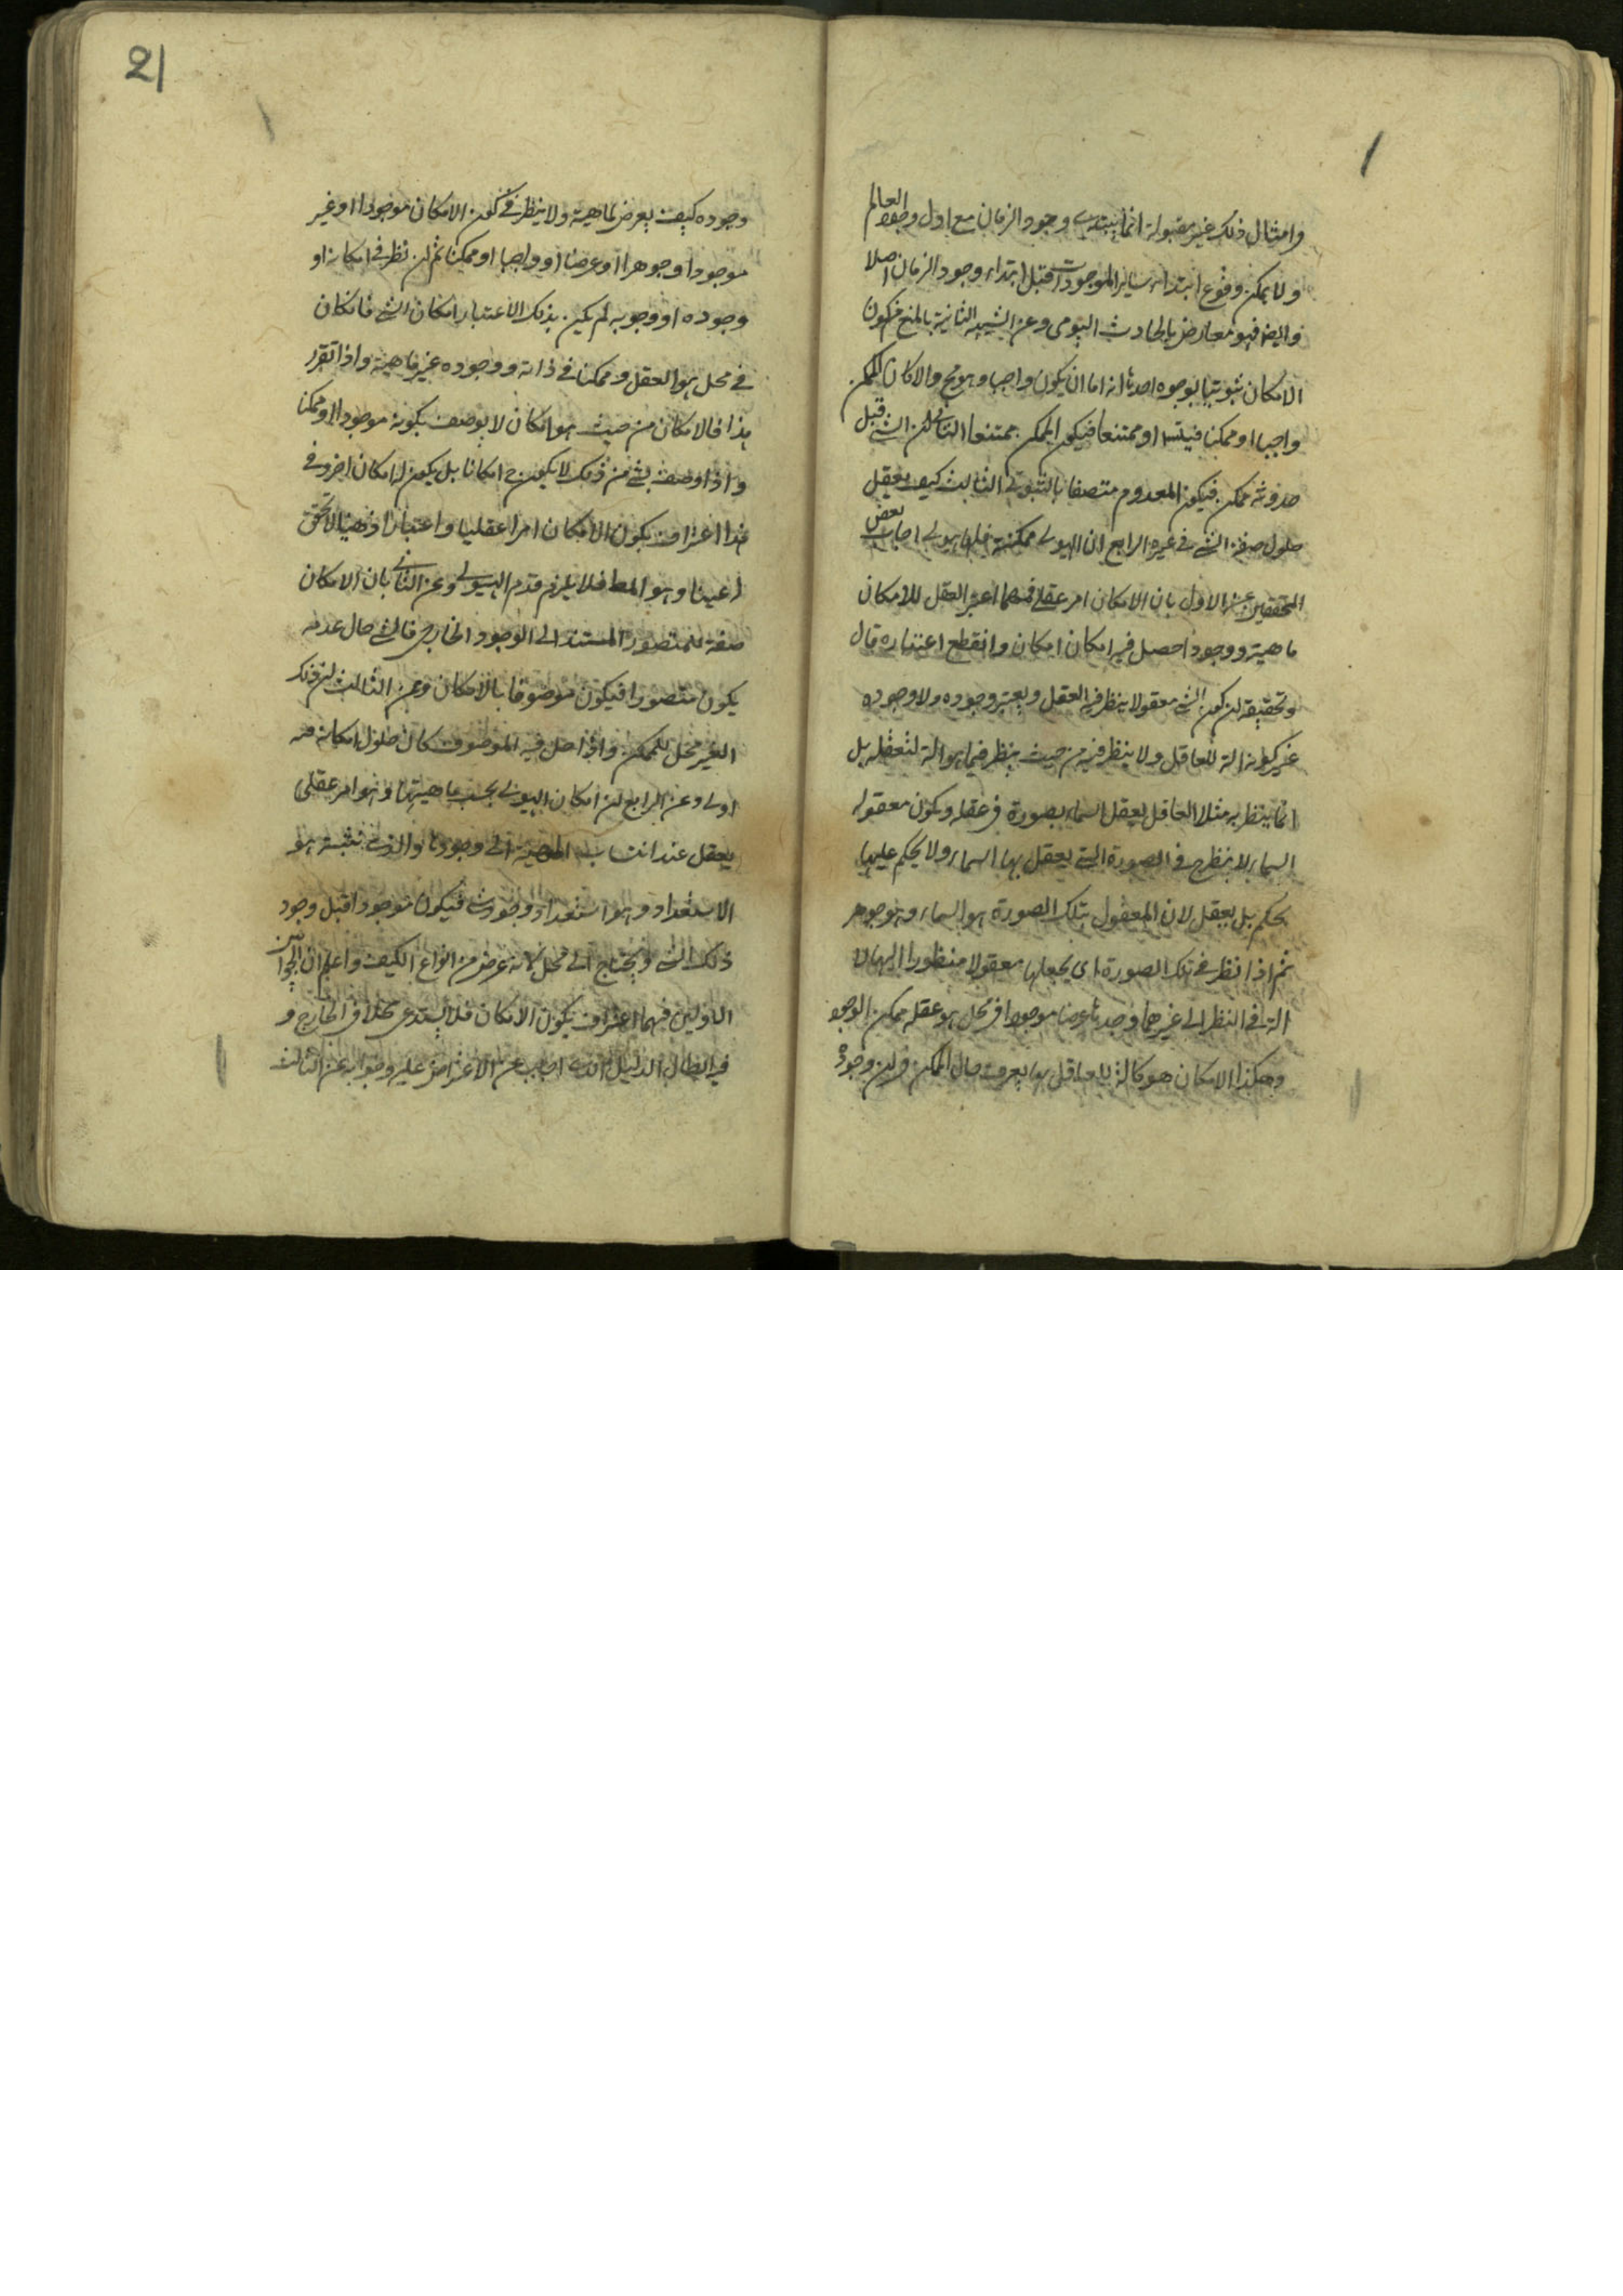 وامثال ذلك غير مقبولة انما يبتدى وجود الزمان مع اول وجود العالم
ولا يمكن وقوع ابتداء ساير الموجودات قبل ابتداء وجود الزمان اصلا
وايضا فهو معارض بالحادث اليومى وعن الشبهة الثانية بالمنع من كون
الامكان ثبوتيا بوجوه احدها انه اما ان يكون واجبا وهو مح والا كان الممكن
واجبا او ممكنا فيتسلسل او ممتنعا فيكون الممكن ممتنعا الثانى ان الشئ قبل
حدوثه ممكن فيكون المعدوم متصفا بالثبوتى الثالث كيف يعقل
حلول صفة الشئ فى غيره الرابع ان الهيولى ممكنة فلها هيولى اجاب بعض
المحققين عن الاول بان الامكان امر عقلى فمهما اعتبر العقل للامكان
ماهية ووجودا حصل فيه امكان امكان وانقطع اعتباره قال
وتحقيقه ان كون الشئ معقولا ينظر فيه العقل ويعتبر وجوده ولا وجوده
غير كونه الة للعاقل ولا ينظر فيه من حيث ينظر فيما هو الة لتعقله بل
انما ينظر به مثلا العاقل يعقل السماء بصورة فى عقله ويكون معقوله
السماء لا ينظر ح فى الصورة التى يعقل بها السماء ولا يحكم عليها
بحكم بل يعقل لان المعقول بتلك الصورة هو السماء وهو جوهر
ثم اذا نظر فى تلك الصورة اى يجعلها معقولا منظورا اليها لا
الة فى النظر الى غيرها وجدها عرضا موجودا فى محل هو عقله ممكن الوجود
وهكذا الامكان هو كالة للعاقل بها يعرف حال الممكن فى ان وجوده
21
وجوده كيف يعرض لماهية ولا ينظر فى كون الامكان موجودا او غير
موجود او جوهرا او عرضا او واجبا او ممكنا ثم ان نظر فى امكانه او
وجوده او وجوبه لم يكن بذلك الاعتبار امكان الشئ فانه كان
فى محل هو العقل وممكنا فى ذاته ووجوده غير ماهية واذا تقرر
هذا فالامكان من حيث هو امكان لا يوصف بكونه موجودا او ممكنا
واذا وصف بشئ من ذلك لا يكون ح امكانا بل يكون له امكان اخر وفى
هذا اعتراف بكون الامكان امرا عقليا واعتبارا ذهنيا لا تحقق
عينا وهو المط فلا يلزم قدم الهيولى وعن الثانى بان الامكان
صفة للمتصور المستند الى الوجود الخارجى فالشئ حال عدمه
يكون متصورا فيكون موصوفا بالامكان وعن الثالث ان ذلك
الغير محل للممكن واذا حل فيه الموصوف كان حلول امكانه فيه
اولى وعن الرابع ان امكان الهيولى بحسب ماهيتها وهو امر عقلى
يعقل عند انتساب الماهية الى وجودها والذى نثبته هو
الاستعداد وهو استعداد وجود شئ فيكون موجودا قبل وجود
ذلك الشئ ويحتاج الى محل لانه عرض من انواع الكيف واعلم ان الجوابين
الاولين فيهما اعتراف بكون الامكان فلا يستدعى محلا فى الخارج و
فيه ابطال الدليل الذى اجاب عن الاعتراض عليه وجوابه عن الثالث